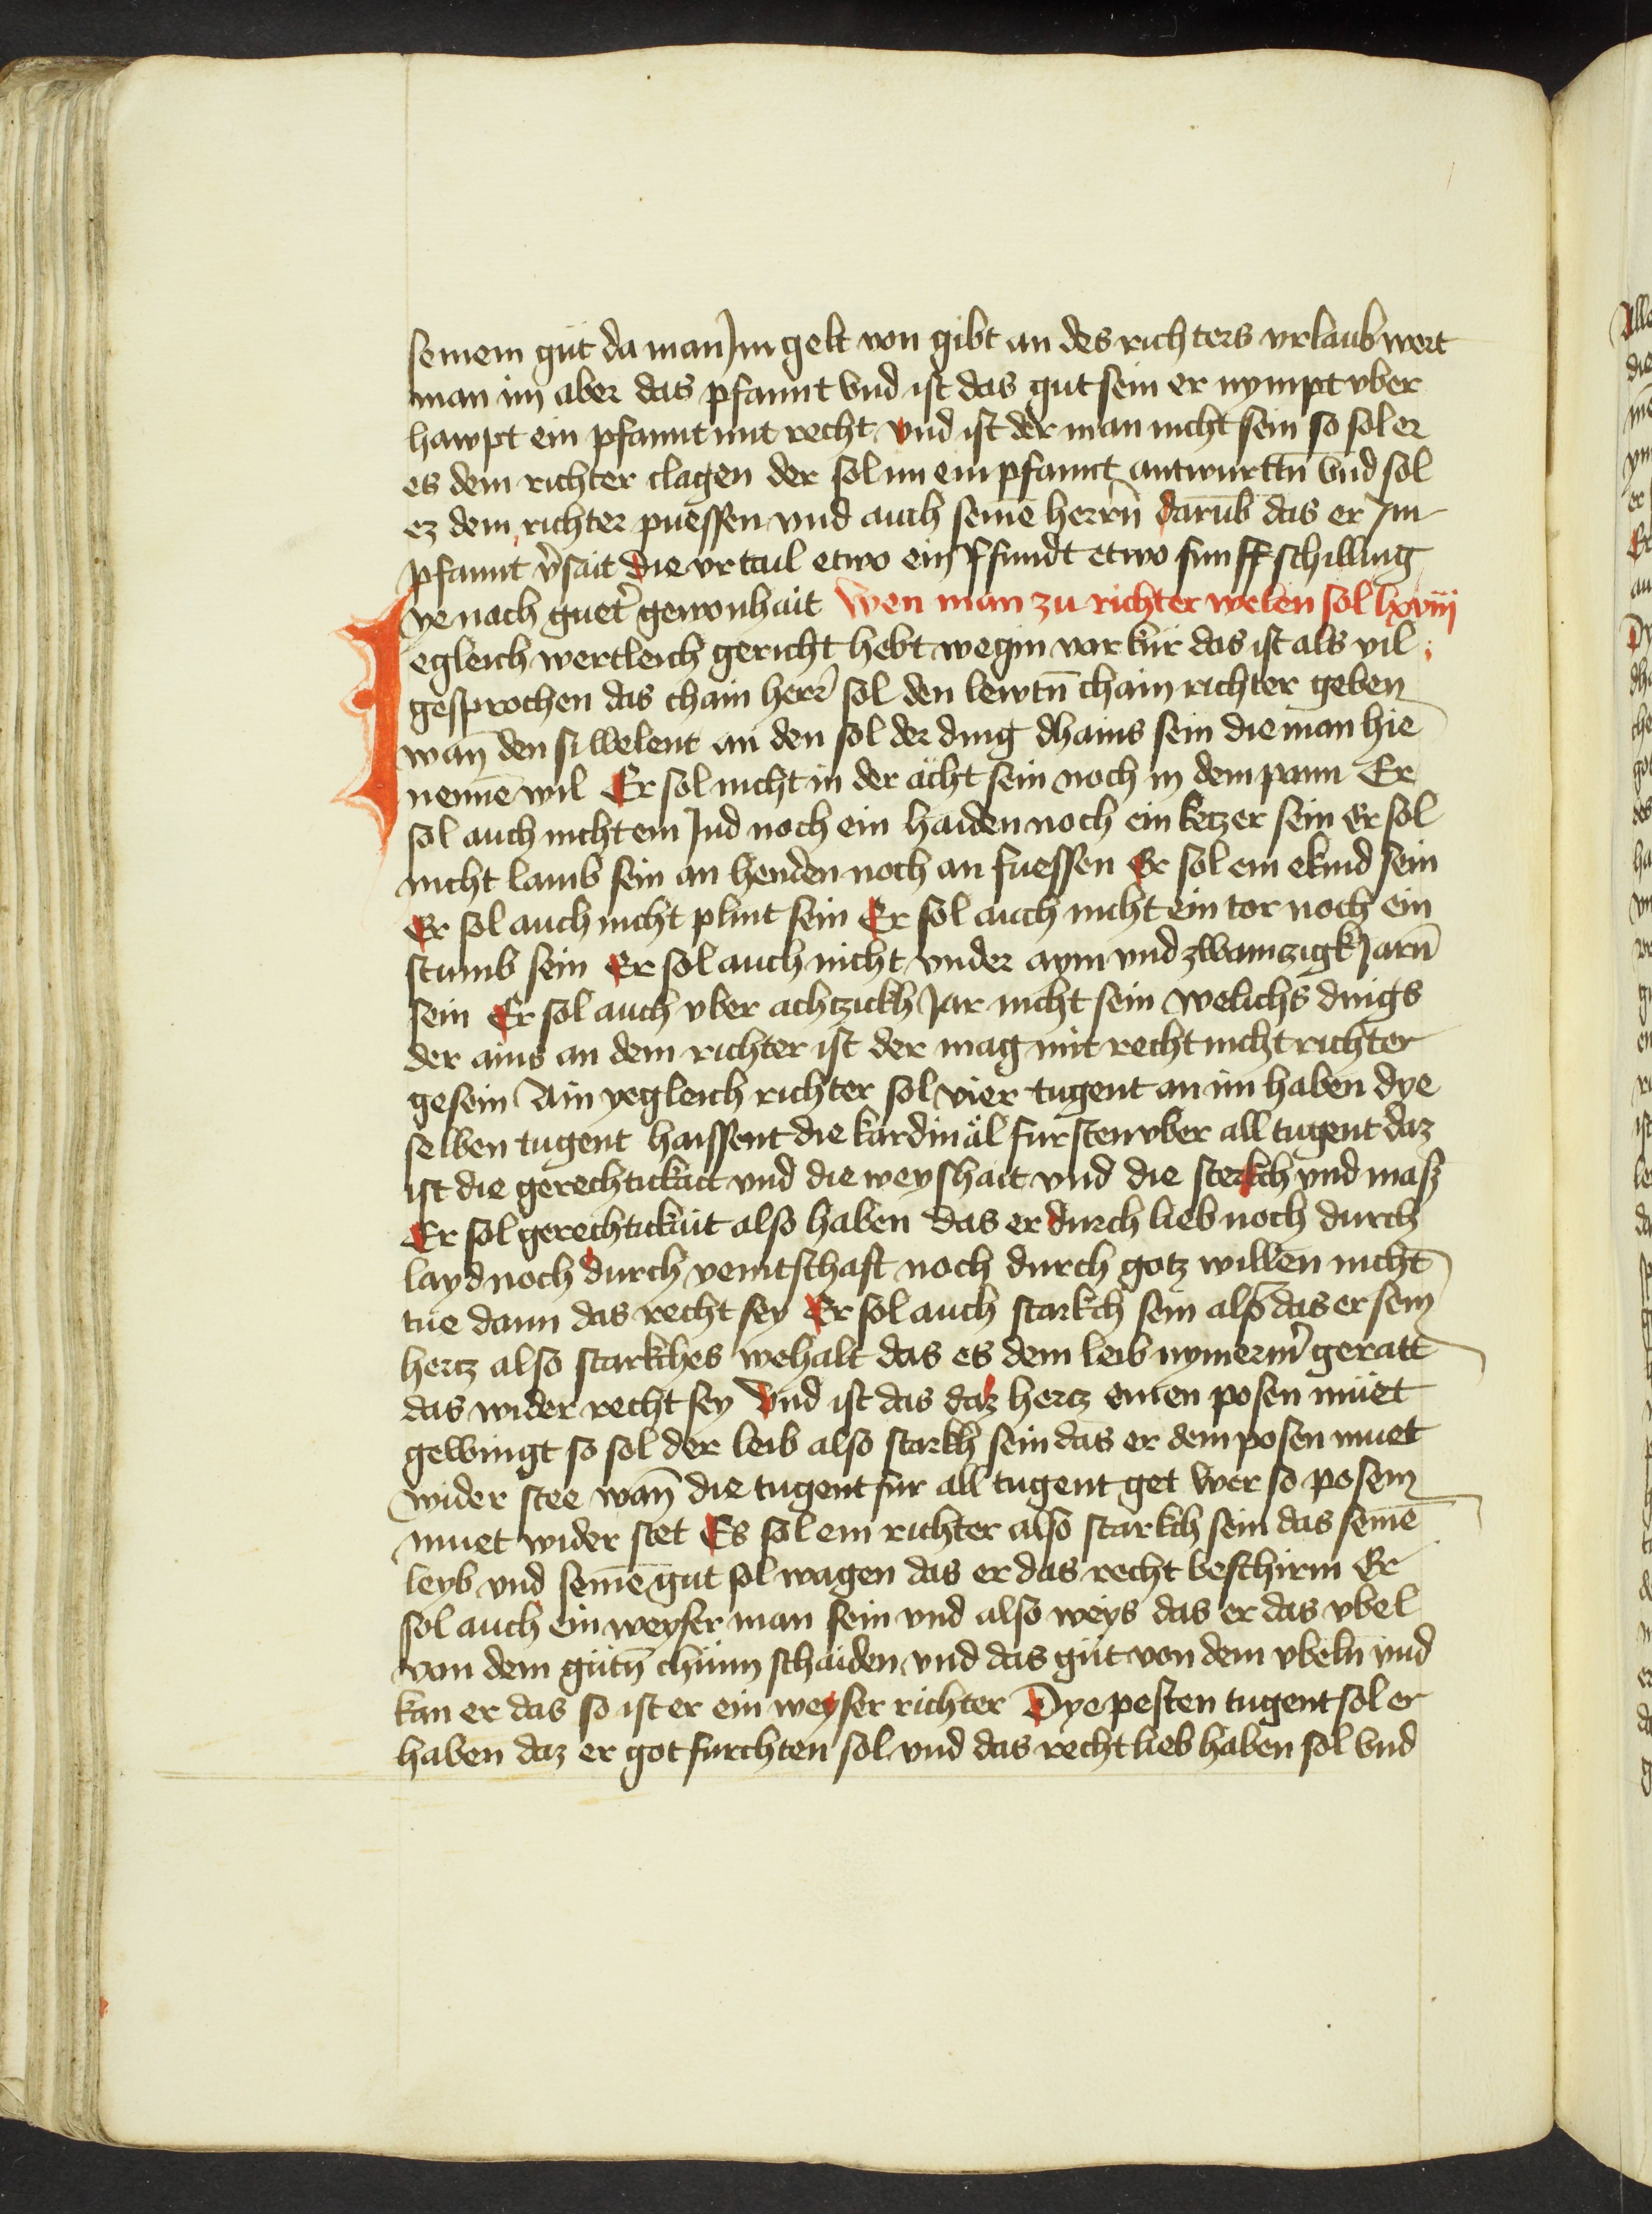 seinem güt da man Im gelt von gibt an des richters vrlaub wert
man im aber das pfannt vnd ist das gut sein er nympt vber
hawpt ein pfannt mit recht vnd ist der man nicht sein so sol er
es dem richter clagen der sol im ein pfannt antwurttn̄ vnd sol
ez dem richter puessen vnd auch seinē herrn̄ darūb das er Im
pfannt v̾sait die vrtail etwo ein Pfundt etwo funff schilling
ye nach guet̾ gewonhait Wen man zu richter welen sol lxxviij
Iegleich wertleich gericht hebt wegin von kür das ist als vil
gesprochen das chain herr̾ sol den lewtn̄ chain richter geben
wan̄ den si welent an den sol der ding dhains sein die man hie
nennē wil Er sol nicht in der ächt sein noch in dem pann Er
sol auch nicht ein Jud noch ein haiden noch ein ketzer sein Er sol
nicht lamb sein an henden noch an fuessen Er sol ein ekind sein
Er sol auch nicht plint sein Er sol auch nicht ein tor noch ein
stumb sein Er sol auch nicht vnder aym vnd zwaintzigk Jarn̄
sein Er sol auch vber achtzickh Jar nicht sein welichs dings
der ains an dem richter ist der mag mit recht nicht richter
gesein Ain yegleich richter sol vier tugent an im haben dye
selben tugent haissent die kardinäl fursten vber all tugent daz
ist die gerechtickait vnd die weyshait vnd die sterkch vnd masz
Er sol gerechtickait also haben das er durch lieb noch durch
layd noch durch veintschaft noch durch gotz willen nicht
tue dann das recht sey Er sol auch starkch sein also das er sein
hertz also starkches wehalt das es dem leib nymerm̾ geratt
das wider recht sey Vnd ist das daz hertz einen posen müet
gewingt so sol der leib also starkh sein das er dem posen muet
wider stee wan̄ die tugent fur all tugent get wer so posem
muet wider stet Es sol ein richter also starkch sein das seinē
leyb vnd seinē gut sol wagen das er das recht beschirm Er
sol auch ein weyser man sein vnd also weys das er das vbel
von dem gütn̄ chünn schaiden vnd das güt von dem vbeln vnd
kan er das so ist er ein weyser richter Dye pesten tugent sol er
haben daz er got furchten sol vnd das recht lieb haben sol vnd